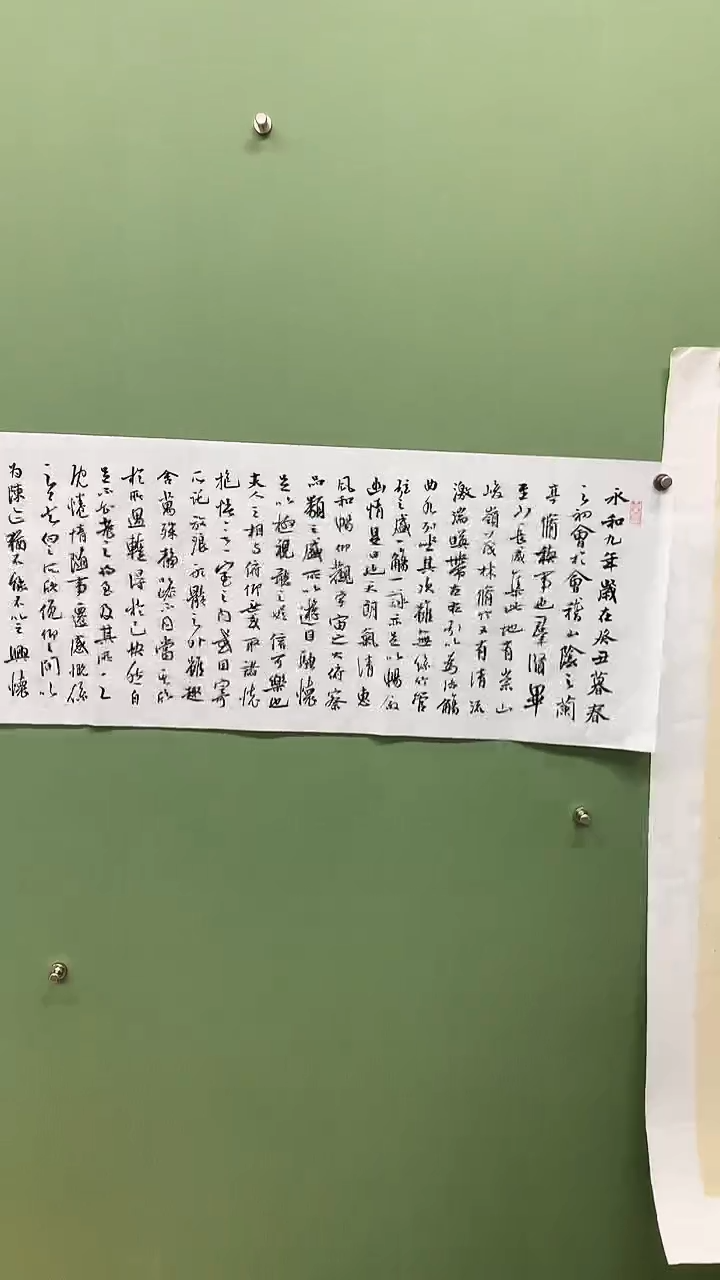 永和九年歲在癸丑暮春
之初會於會稽山陰之蘭
亭脩禊事也羣賢畢
至少長咸集此地有崇山
峻嶺茂林脩竹又有清流
激湍暎帶左右引以為流觴
曲水列坐其次雖無絲竹管
弦之盛一觴一詠亦足以暢敘
幽情是日也天朗氣清惠
風和暢仰觀宇宙之大俯察
品類之盛所以遊目騁懷
足以極視聽之娛信可樂也
夫人之相與俯仰一世或取諸懷
抱悟言一室之內或因寄
所託放浪形骸之外雖趣
舍萬殊靜躁不同當其欣
於所遇暫得於己快然自
足不知老之將至及其所之
既惓情隨事遷感慨係
之矣向之所欣俛仰之間以
為陳迹猶不能不以之興懷